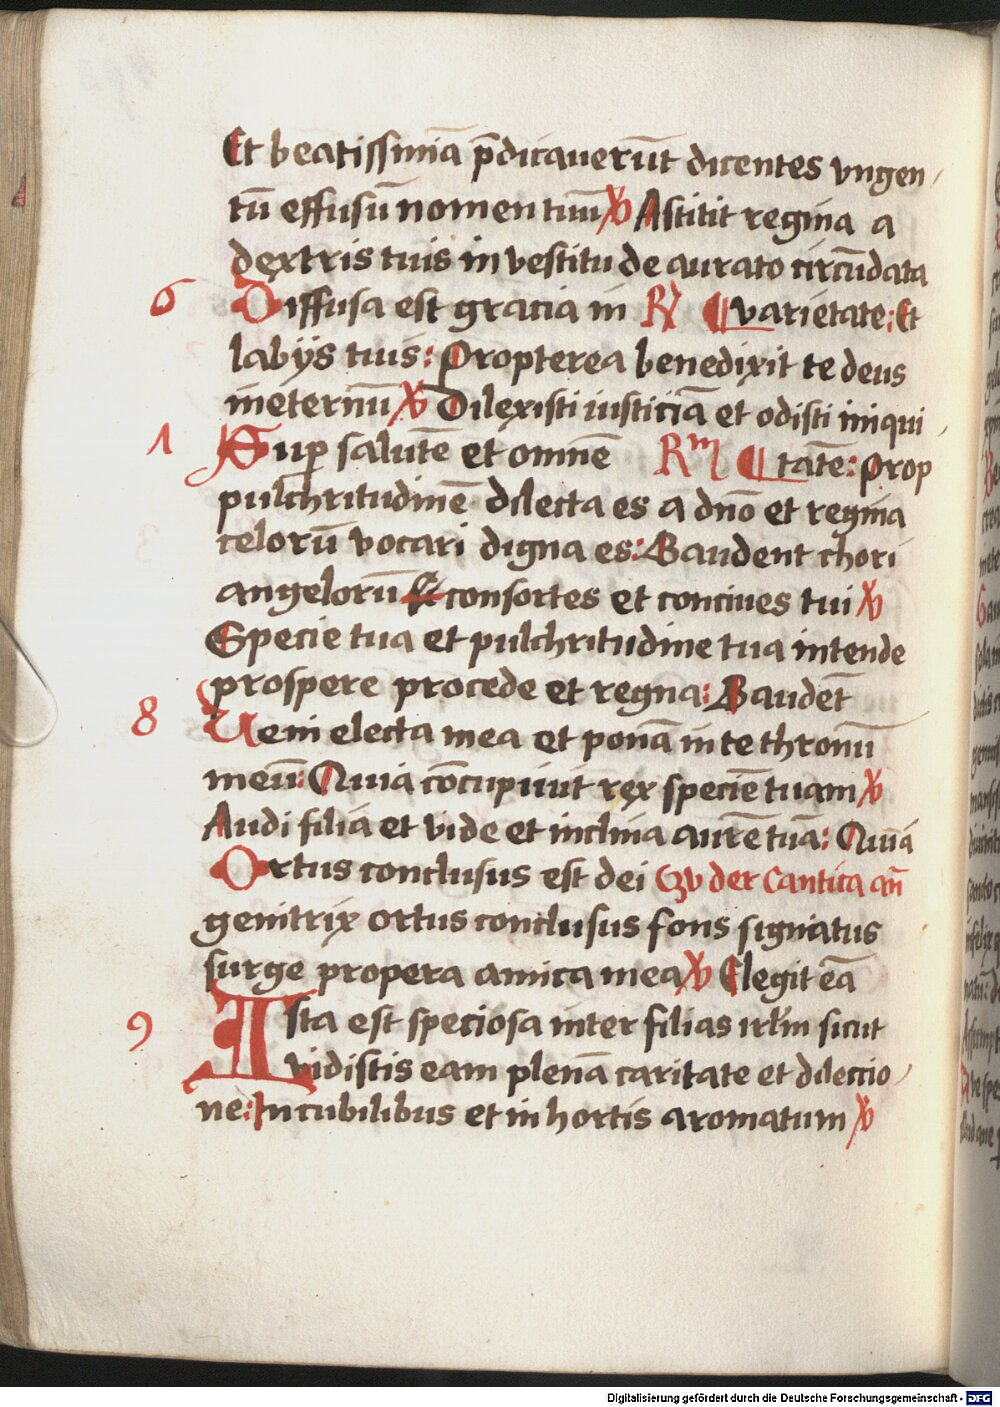 Et beatissimā p̄dicauerūt dicentes vngen
tū effusū nomen tuū ℣ Astitit regina a
dextris tuis in vestitu de aurato circūdata
6 Diffusa est gracia in R ¶ varietate: Et
labijs tuis: Propterea benedixit te deus
in eternū ℣ Dilexisti iusticiā et odisti iniqui
1 Sup salutē et omnē Rm ¶ tatē: Prop
pulchritudinē dilecta es a dn̄o et regina
celorū vocari digna es: Gaudent chori
angelorū consortes et conciues tui ℣
Specie tua et pulchritudine tua intende
prospere procede et regna: Gaudēt
8 Ueni electa mea et ponā in te thronū
meū: Quia cōcupiuit rex speciē tuam ℣
Audi filia et vide et inclina aurē tuā: Quia
Ortus conclusus est dei Czu der Cantica an̄
genitrix ortus conclusus fons signatus
surge propera amica mea ℣ Elegit eā
9 Ista est speciosa inter filias irl̄m sicut
vidistis eam plenā caritate et dileccio
ne: In cubilibus et in hortis aromatum ℣
Digitalisierung gefördert durch die Deutsche Forschungsgemeinschaft - DFG